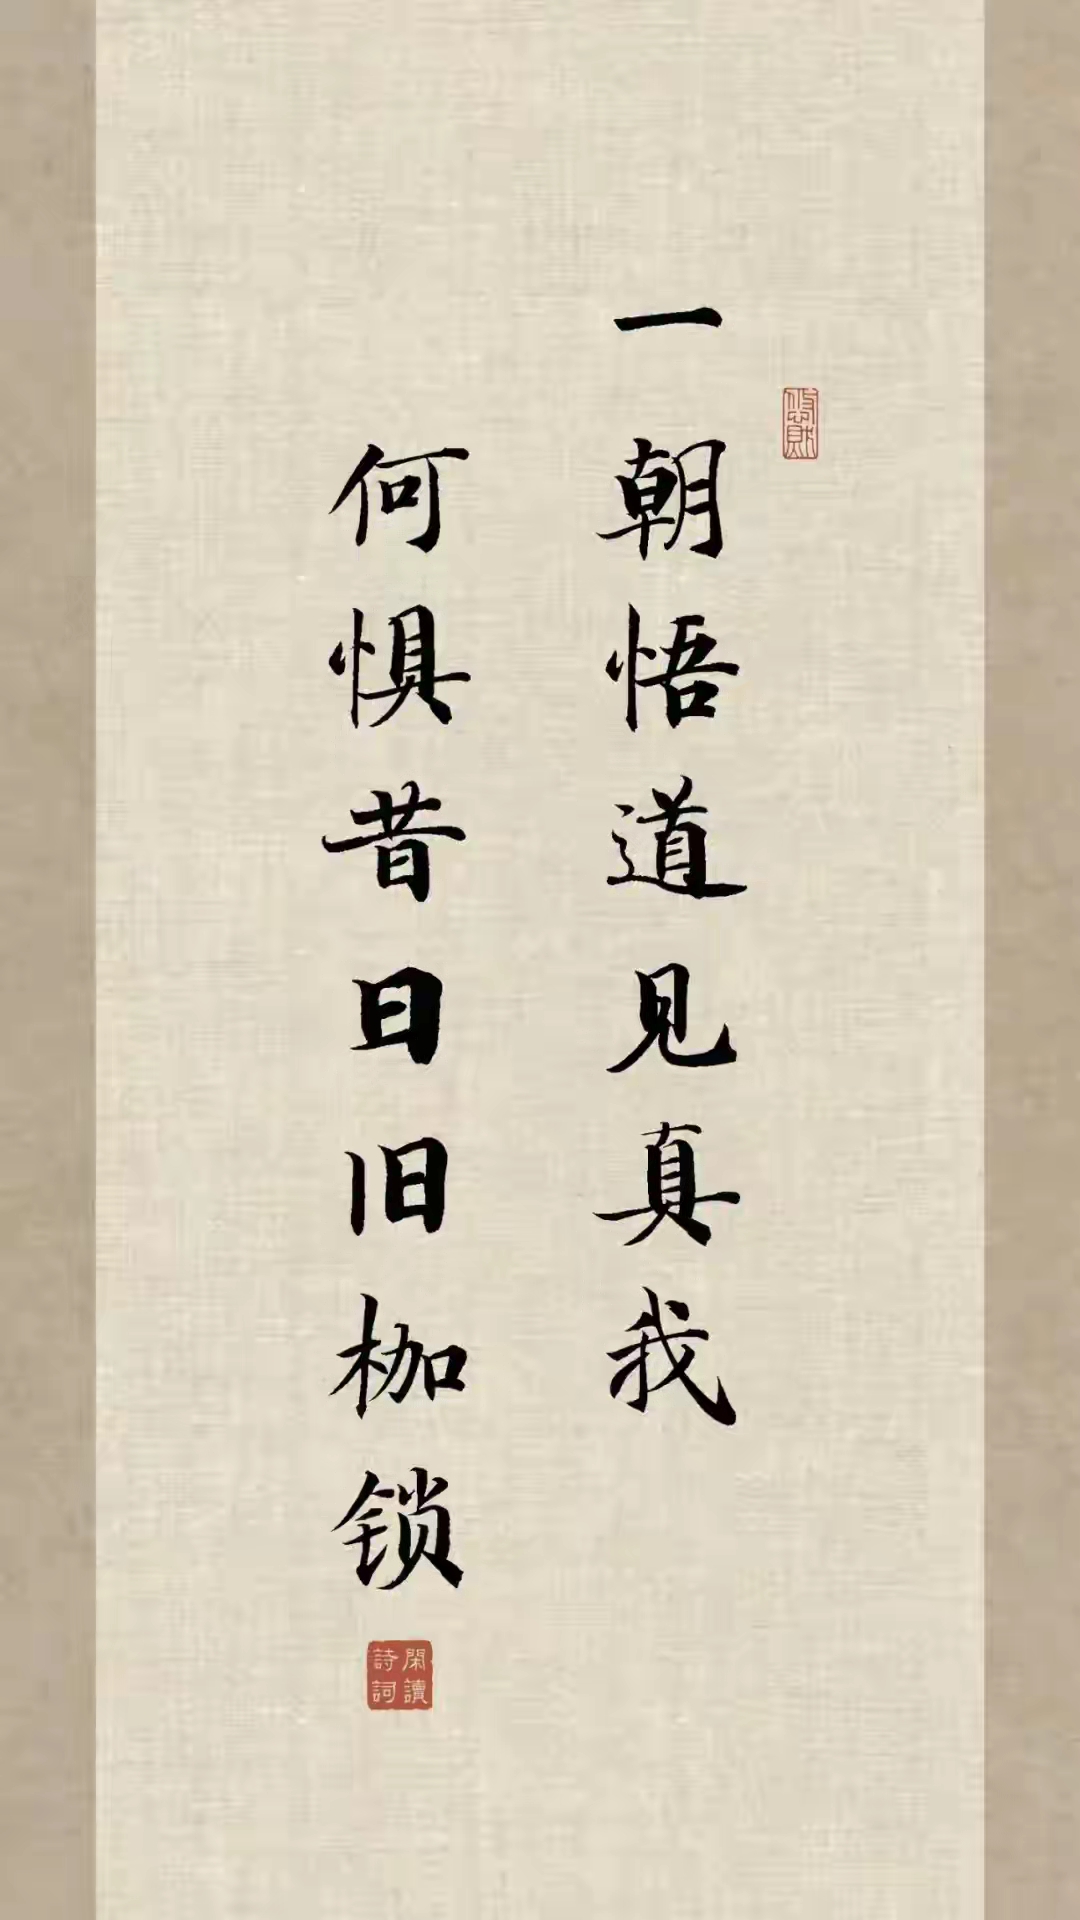 一朝悟道见真我
何惧昔日旧枷锁
閑讀
詩詞